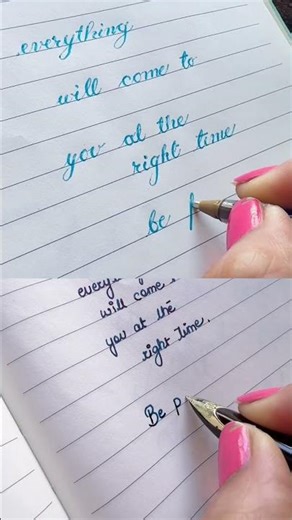 everything
will come to
you at the
right time
be p
will come
you at the
right Time.
Be p